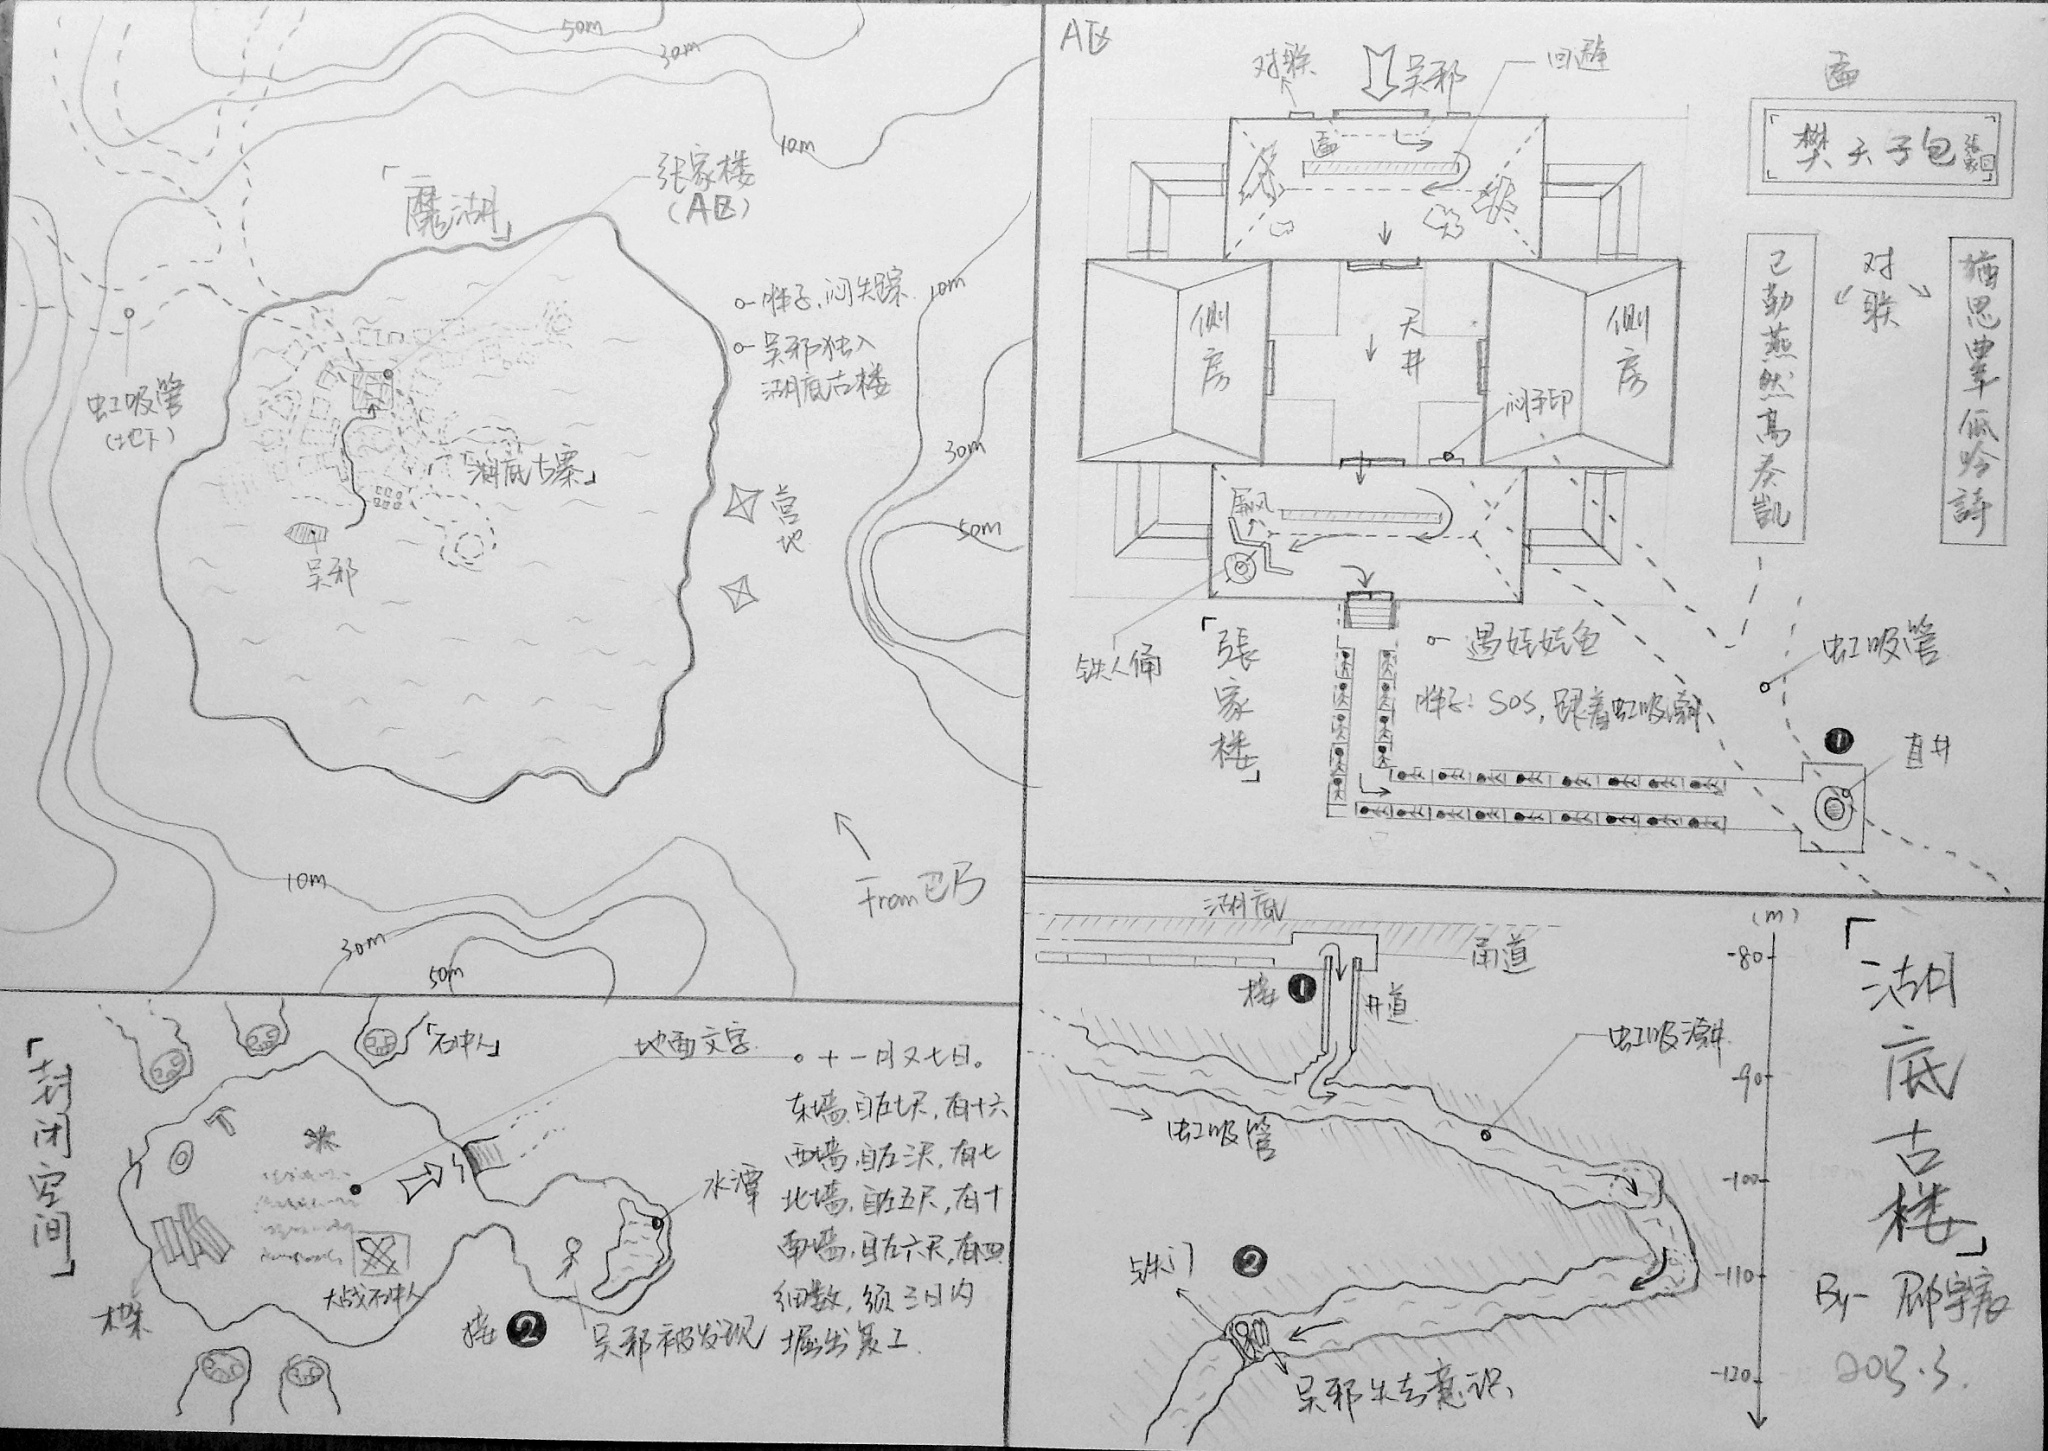 50m
30m
10m
「魔湖」
张家楼
(A区)
胖子、闷失踪
吴邪独入
湖底古楼
10m
30m
50m
虹吸管
(地下)
「湖底古寨」
吴邪
营地
From 巴乃
10m
30m
50m
A区
对联
吴邪
回避
匾
匾
樊天子包
张家
对联
已勤燕然高奏凯
犹思覃低吟詩
侧房
天井
侧房
闷手印
屏风
铁人俑
「張家楼」
遇娃娃鱼
胖子: SOS,跟着虹吸潮
虹吸管
❶
直井
「封闭空间」
「石中人」
地面文字
十一月又七日。
东墙,自左七尺,有十六
西墙,自左三尺,有七
北墙,自左五尺,有十
南墙,自左六尺,有四
细数,须三日内
掘出复工
水潭
大战石中人
棺
接❷
吴邪被发现
湖底
甬道
接❶
井道
虹吸潮
虹吸管
铁门
❷
吴邪失去意识
(m)
-80
-90
-100
-110
-120
「湖底古楼」
By-
2013.3.